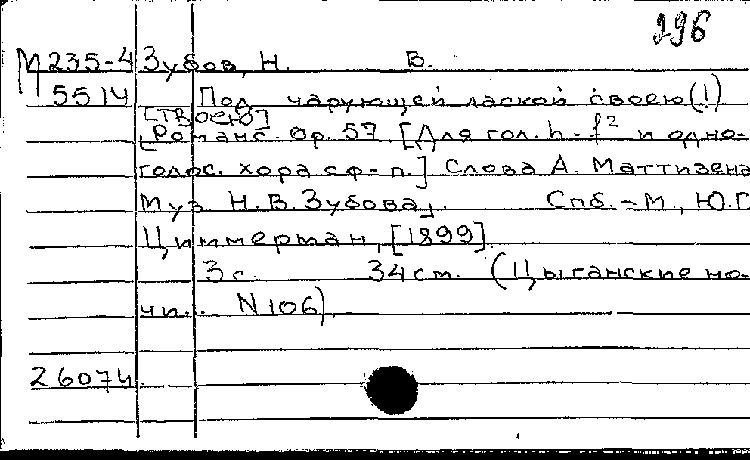 296
М 235-4 Зубов, Н. В.
5514 Под чарующей лаской своею(!)
[твоею]
[Романс. Ор. 57. [Для гол. h-f² и одно-
голос. хора с ф-п.] Слова А. Маттизена
Муз. Н.В. Зубова]. Спб. - М., Ю.Г.
Циммерман, [1899].
3 с. 34 см. (Цыганские но-
чи... N 106).
26074